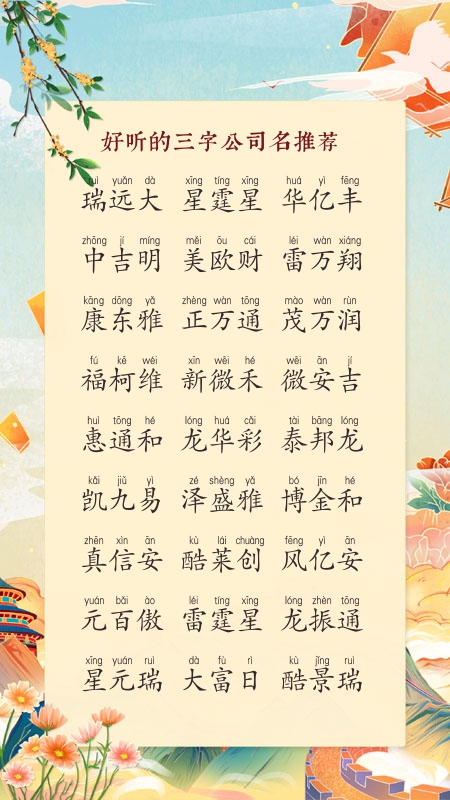 好听的三字公司名推荐
ruì yuǎn dà xīng tíng xīng huá yì fēng
瑞远大 星霆星 华亿丰
zhōng jí míng měi ōu cái léi wàn xiáng
中吉明 美欧财 雷万翔
kāng dōng yǎ zhèng wàn tōng mào wàn rùn
康东雅 正万通 茂万润
fú kē wéi xīn wēi hé wēi ān jí
福柯维 新微禾 微安吉
huì tōng hé lóng huá cǎi tài bāng lóng
惠通和 龙华彩 泰邦龙
kǎi jiǔ yì zé shèng yǎ bó jīn hé
凯九易 泽盛雅 博金和
zhēn xìn ān kù lái chuàng fēng yì ān
真信安 酷莱创 风亿安
yuán bǎi ào léi tíng xīng lóng zhèn tōng
元百傲 雷霆星 龙振通
xīng yuán ruì dà fù rì kù jǐng ruì
星元瑞 大富日 酷景瑞